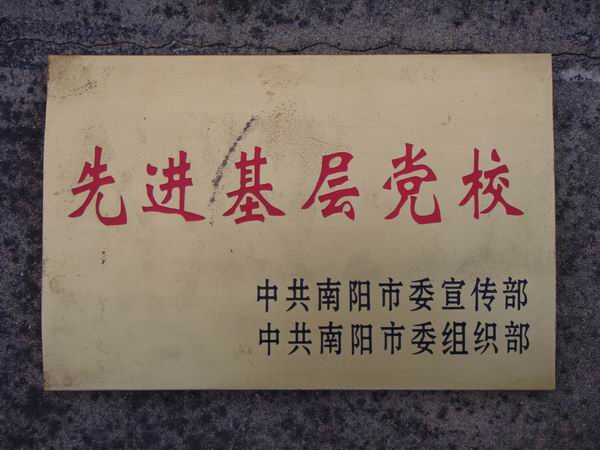 先进基层党校
中共南阳市委宣传部
中共南阳市委组织部